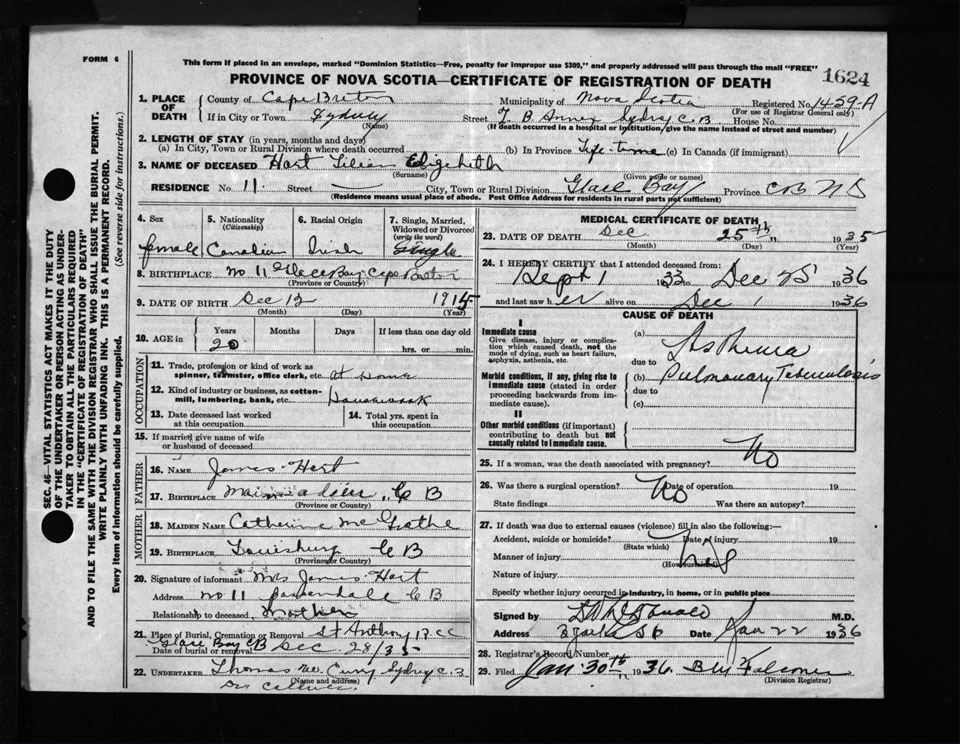 FORM 6
This form if placed in an envelope, marked "Dominion Statistics—Free, penalty for improper use $300," and properly addressed will pass through the mail "FREE"
PROVINCE OF NOVA SCOTIA—CERTIFICATE OF REGISTRATION OF DEATH
1624
1. PLACE OF DEATH
County of Cape Breton Municipality of Nova Scotia Registered No. 1459-A
(For use of Registrar General only)
If in City or Town Sydney Street T. B. Annex Sydney C. B House No.
(Name) (If death occurred in a hospital or institution, give the name instead of street and number)
2. LENGTH OF STAY (in years, months and days)
(a) In City, Town or Rural Division where death occurred (b) In Province Life-time (c) In Canada (if immigrant)
3. NAME OF DECEASED Hart Lilian Elizabeth
(Surname) (Given name or names)
RESIDENCE No. 11 Street City, Town or Rural Division Glace Bay Province C.B N S
(Residence means usual place of abode. Post Office Address for residents in rural parts not sufficient)
4. Sex 5. Nationality (Citizenship) 6. Racial Origin 7. Single, Married, Widowed or Divorced (write the word)
female Canadian Irish Single
8. BIRTHPLACE No 11 Glace Bay Cape Breton
(Province or Country)
9. DATE OF BIRTH Dec 12 1915
(Month) (Day) (Year)
10. AGE Years Months Days If less than one day old
20 hrs. or min.
OCCUPATION
11. Trade, profession or kind of work as spinner, teamster, office clerk, etc. at home
12. Kind of industry or business, as cotton-mill, lumbering, bank, etc. Housework
13. Date deceased last worked at this occupation 14. Total yrs. spent in this occupation
15. If married give name of wife or husband of deceased
FATHER
16. NAME James Hart
17. BIRTHPLACE Main a dieu, C B
(Province or Country)
MOTHER
18. MAIDEN NAME Catherine
19. BIRTHPLACE Louisburg C B
(Province or Country)
20. Signature of informant Mrs James Hart
Address No 11 C B
Relationship to deceased Mother
21. Place of Burial, Cremation or Removal St Anthony
Glace Bay CB
Date of burial or removal Dec 28/35
22. UNDERTAKER Thomas Sydney C. B
(Name and address)
MEDICAL CERTIFICATE OF DEATH
23. DATE OF DEATH Dec 25th 1935
(Month) (Day) (Year)
24. I HEREBY CERTIFY that I attended deceased from:
Sept 1 1933 to Dec 25 1936
and last saw her alive on Dec 1 1936
CAUSE OF DEATH
I
Immediate cause
Give disease, injury or complication which caused death, not the mode of dying, such as heart failure, asphyxia, asthenia, etc.
Morbid conditions, if any, giving rise to immediate cause (stated in order proceeding backwards from immediate cause).
II
Other morbid conditions (if important) contributing to death but not causally related to immediate cause.
(a) Asthenia
due to
(b) Pulmonary Tuberculosis
due to
(c)
25. If a woman, was the death associated with pregnancy? No
26. Was there a surgical operation? No Date of operation 19
State findings Was there an autopsy?
27. If death was due to external causes (violence) fill in also the following:—
Accident, suicide or homicide? Date of injury 19
(State which)
Manner of injury
(How sustained)
Nature of injury
Specify whether injury occurred in industry, in home, or in public place
Signed by M.D.
Address Date Jan 22 1936
28. Registrar's Record Number
29. Filed Jan 30th 1936
(Division Registrar)
SEC. 46—VITAL STATISTICS ACT MAKES IT THE DUTY OF THE UNDERTAKER OR PERSON ACTING AS UNDERTAKER TO OBTAIN ALL THE PARTICULARS REQUIRED IN THE "CERTIFICATE OF REGISTRATION OF DEATH" AND TO FILE THE SAME WITH THE DIVISION REGISTRAR WHO SHALL ISSUE THE BURIAL PERMIT.
WRITE PLAINLY WITH UNFADING INK. THIS IS A PERMANENT RECORD.
Every item of information should be carefully supplied. (See reverse side for instructions.)